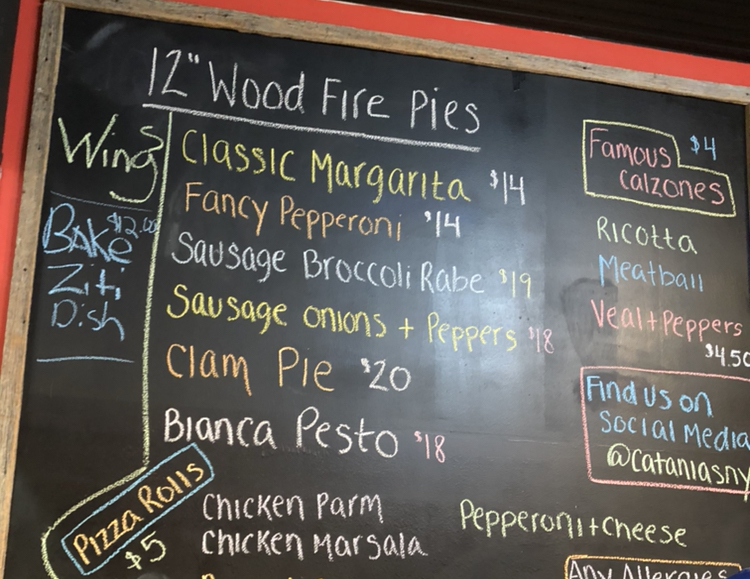 12" Wood Fire Pies
Wings
Bake $12.00
Ziti
Dish
Classic Margarita $14
Fancy Pepperoni $14
Sausage Broccoli Rabe $19
Sausage onions + Peppers $18
Clam Pie $20
Bianca Pesto $18
Famous $4
Calzones
Ricotta
Meatball
Veal + Peppers
$4.50
Find us on
Social Media
@cataniasny
Pizza Rolls
$5
Chicken Parm
Chicken Marsala
Pepperoni + Cheese
Any Allergies